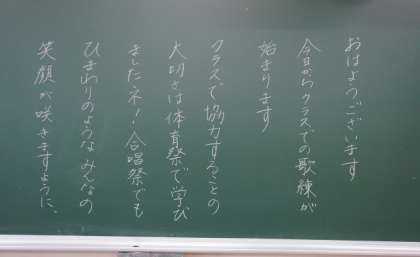 おはようございます
今日からクラスでの歌練が
始まります
クラスで協力することの
大切さは体育祭で学び
ましたネ!合唱祭でも
ひまわりのようなみんなの
笑顔が咲きますように、